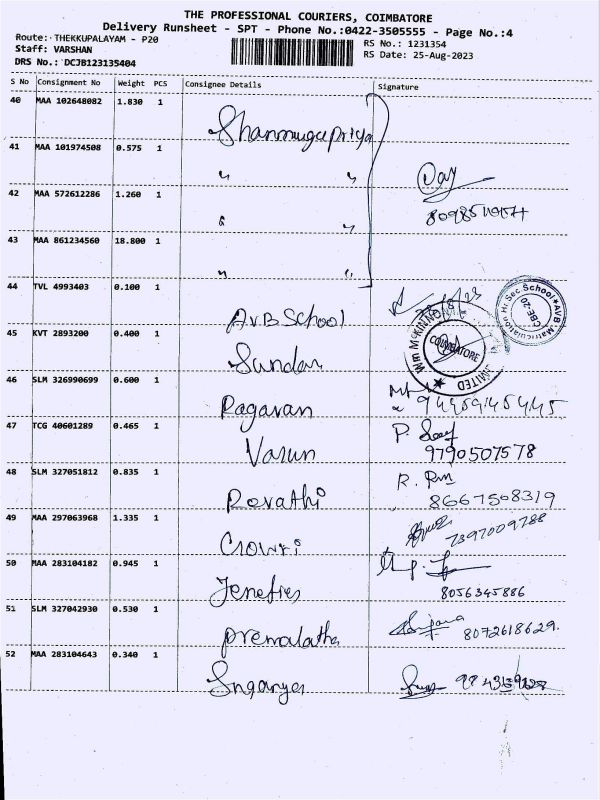 THE PROFESSIONAL COURIERS, COIMBATORE
Delivery Runsheet - SPT - Phone No.:0422-3505555 - Page No.:4
Route: THEKKUPALAYAM - P20
RS No.: 1231354
Staff: VARSHAN
RS Date: 25-Aug-2023
DRS No.: DCJB123135404
S No Consignment No Weight PCS Consignee Details Signature
40 MAA 102648082 1.830 1 Shanmugapriya
41 MAA 101974508 0.575 1 " "
42 MAA 572612286 1.260 1 " "
43 MAA 861234560 18.800 1 " "
44 TVL 4993403 0.100 1 AVB School
AVB Matriculation Hr Sec School
CBE-20
45 KVT 2893200 0.400 1 Sundar
COIMBATORE
LIMITED
46 SLM 326990699 0.600 1 Ragavan
47 TCG 40601289 0.465 1 Varun 9790507578
48 SLM 327051812 0.835 1 Revathi 8667508319
49 MAA 297063968 1.335 1 Gowri 7397009788
50 MAA 283104182 0.945 1 8056345886
51 SLM 327042930 0.530 1 Premalatha 8072618629.
52 MAA 283104643 0.340 1